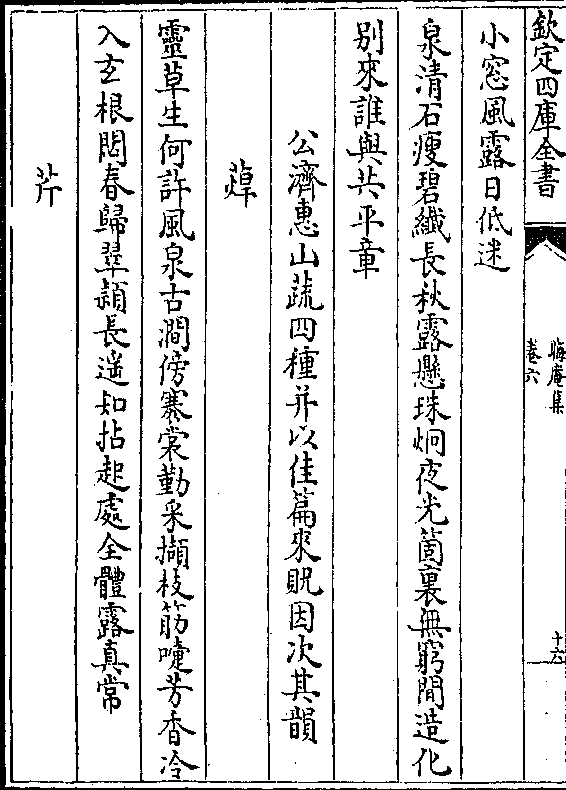 欽定四庫全書
晦庵集
卷六
十六
小窓風露日低迷
泉清石瘦碧纖長秋露懸珠炯夜光箇裏無窮間造化
别來誰與共平章
公濟惠山蔬四種并以佳篇來貺因次其韻
蕈
靈草生何許風泉古澗傍褰裳勤采擷枝筯嚏芳香冷
入玄根閟春歸翠頴長遥知拈起處全體露真常
芹